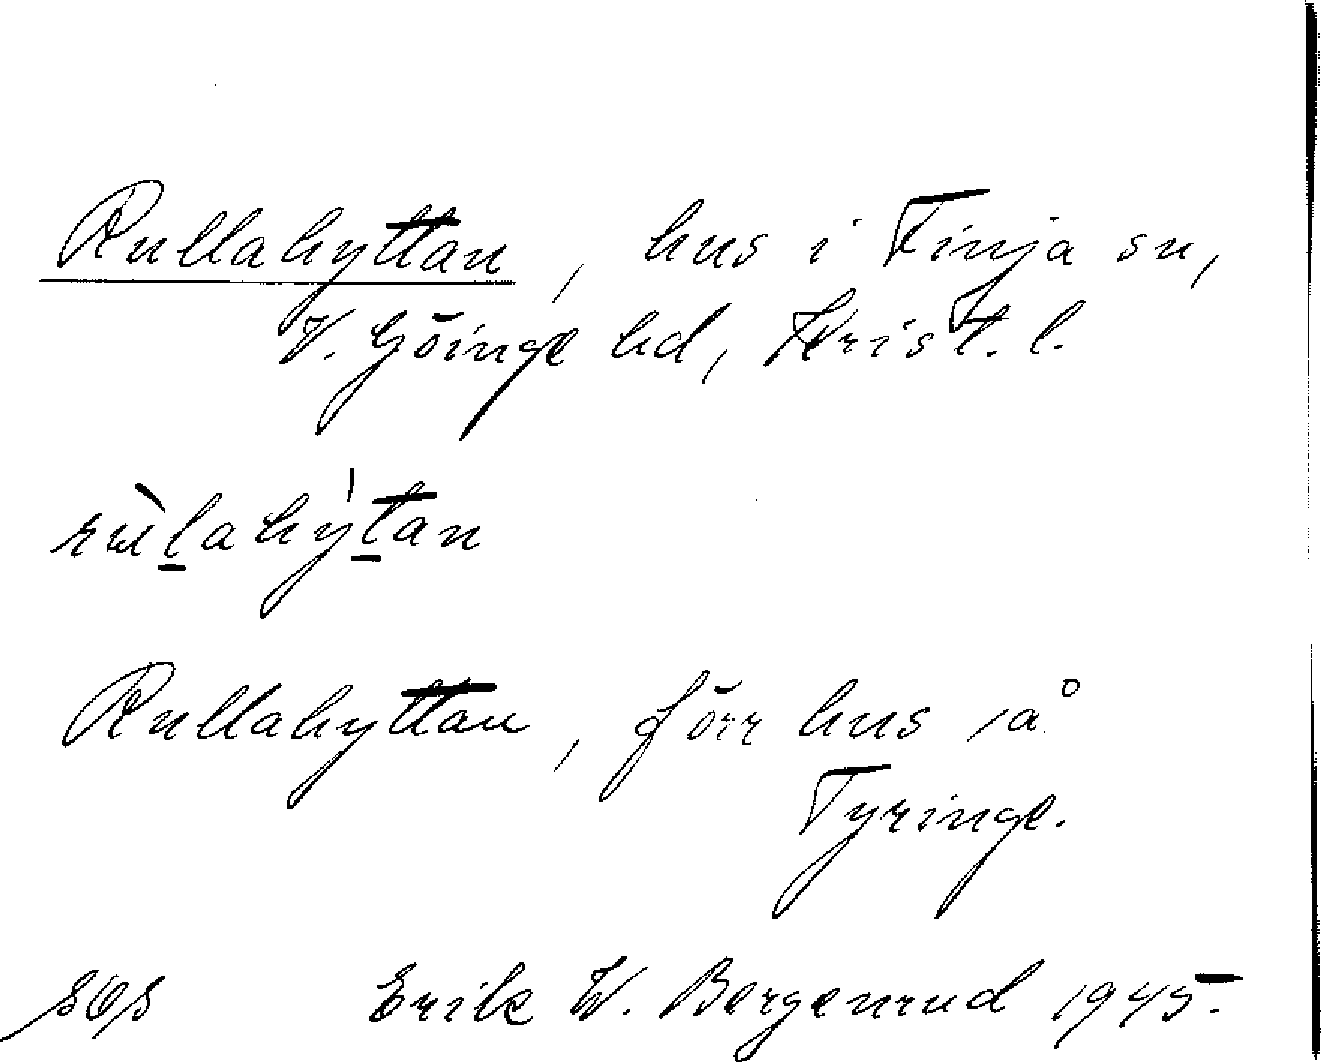 Rullahyttan, hus i Finja sn,
V. Göinge hd, Krist. l.
rùlahy̍tan
Rullahyttan, förr hus på
Tyringe.
Erik W. Bergenrud 1945.